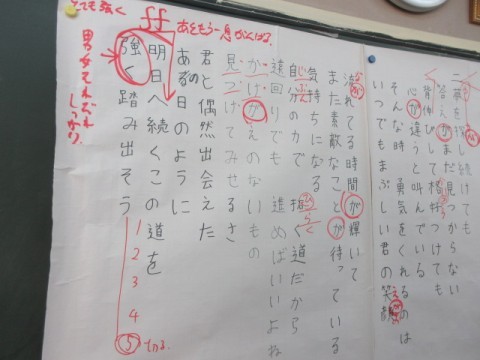 二 夢を探し続けても
答えがまだ見つからない
背伸びして格好つけても
心が違うと叫んでいる
そんな時 勇気をくれるのは
いつでもまぶしい君の笑顔
流れてる時間が輝いて
また素敵なことが待っている
気持ちになる
自分の力で 描く道だから
遠回りでも 進めばいいよね
かけがえのないもの
見つけてみせるさ
君と偶然出会えた
あの日のように
明日へ続くこの道を
強く踏み出そう
1 2 3 4 5 切る
ff
あともう一息がんばる
とても強く
男女それぞれ
しっかり